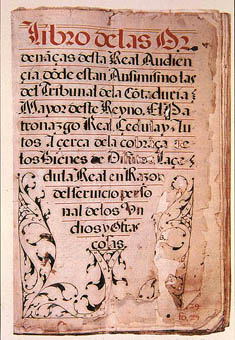 Libro delas Or
denāças desta Real Audien
çia dōde estan Ausimismo las
del Tribunal dela Cōtaduria
Mayor deste Reyno, El Pa
tronazgo Real, Cedulas y Au
tos Açerca dela cobrāça
tos Bienes de Difūtos La çe
dula Real en Razon
del serviçio perso
nal de los Yn
dios y Otras
cosas